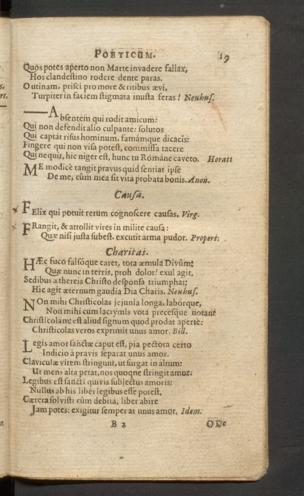 POETICUM. 19
Quos potes aperto non Marte invadere fallax,
Hos clandestino rodere dente paras.
O utinam, prisci pro more & ritibus ævi,
Turpiter in faciem stigmata inusta feras! Neuhus.
——Absentem qui rodit amicum:
Qui non defendit alio culpante: solutos
Qui captat risus hominum, famamque dicacis:
Fingere qui non visa potest, commissa tacere
Qui nequit, hic niger est, hunc tu Romane caveto. Horati
ME modicè tangit pravus quid sentiat ipse
De me, cùm mea sit vita probata bonis. Anon.
Causa.
FElix qui potuit rerum cognoscere causas. Virg.
FRangit, & attollit vires in milite causa:
Quæ nisi justa subest, excutit arma pudor. Propert.
Charitas.
HÆc fuco falsoque caret, tota æmula Divûm;
Quæ nunc in terris, proh dolor! exul agit.
Sedibus æthereis Christo desponsa triumphat;
Hic agit æternum gaudia Dia Charis. Neuhus.
NOn mihi Christicolas jejunia longa, laborque,
Non mihi cum lacrymis vota precesque notant
Christicolam: est aliud signum quod prodat apertè:
Christicolas veros exprimit unus amor. Bill.
LEgis amor sanctæ caput est, pia pectora certo
Indicio à pravis separat unus amor.
Claviculæ vitem stringunt, ut surgat in altum:
Ut mens alta petat, nos quoque stringit amor.
Legibus est sancti quivis subjectus amoris:
Nullus ab his liber legibus esse potest.
Cætera solvisti cùm debita, liber abire
Jam potes: exigitur semper at unus amor. Idem.
B 2